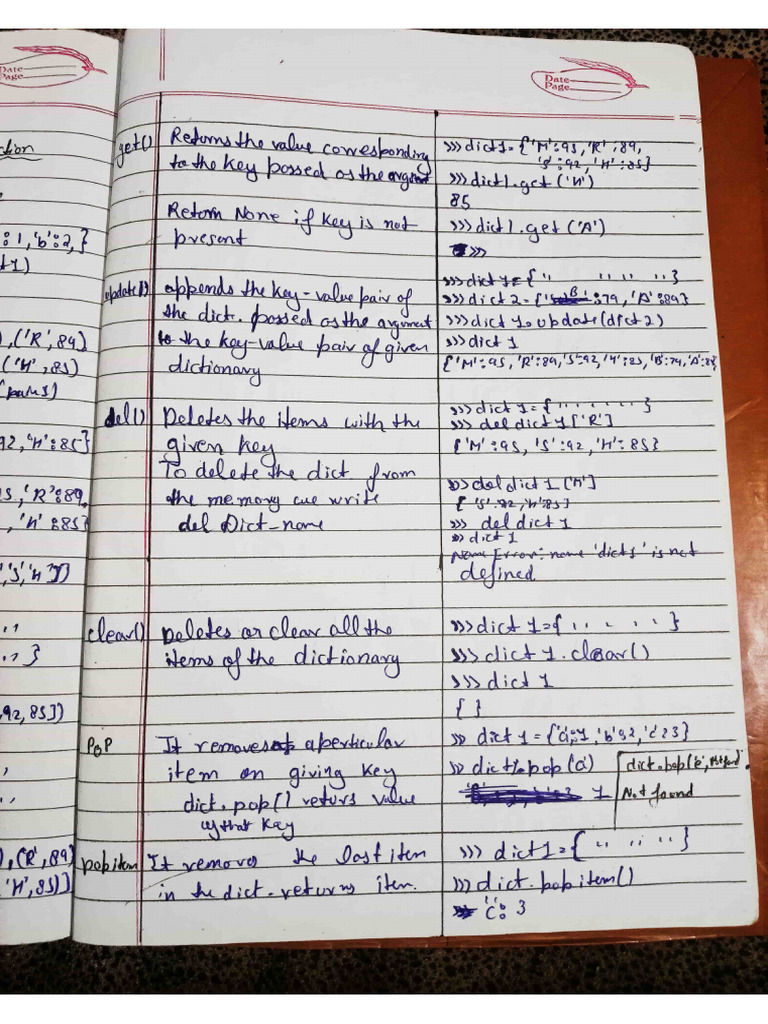 Date
Page
Date
Page
ction
: 1, 'b':2,}
t1)
), ('R', 89)
('H', 85)
92, 'H': 85}
'R': 89,
, 'H': 85}
'S', 'H'])
92, 85])
), ('R', 89)
'H', 85)]
get()
Returns the value corresponding
to the key passed as the argument
Return None if key is not
present
>>> dict1 = {'M': 95, 'R': 89,
'S': 92, 'H': 85}
>>> dict1.get('H')
85
>>> dict1.get('A')
>>>
update()
appends the key-value pair of
the dict. passed as the argument
to the key-value pair of given
dictionary
>>> dict1 = {" " " " "}
>>> dict2 = {'B': 79, 'A': 89}
>>> dict1.update(dict2)
>>> dict1
{'M': 95, 'R': 89, 'S': 92, 'H': 85, 'B': 79, 'A': 89}
del()
Deletes the items with the
given key
To delete the dict from
the memory we write
del Dict_name
>>> dict1 = { " " " " " " }
>>> del dict1['R']
{'M': 95, 'S': 92, 'H': 85}
>>> del dict1['M']
{'S': 92, 'H': 85}
>>> del dict1
>> dict1
Name Error: name 'dict1' is not
defined
clear()
Deletes or clear all the
items of the dictionary
>>> dict1 = { " " " " }
>>> dict1.clear()
>>> dict1
{}
POP
It removes a perticular
item on giving key
dict.pop() returs value
of that key
>> dict1 = {'a':1, 'b':2, 'c':3}
>> dict1.pop(a)
1
Not found
popitem
It removes the last item
in the dict. returns item.
>>> dict1 = { " " " }
>>> dict.popitem()
'c': 3